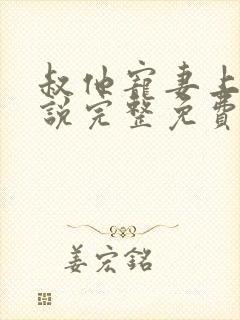 叔他寵妻上
說完整免費
姜宏銘